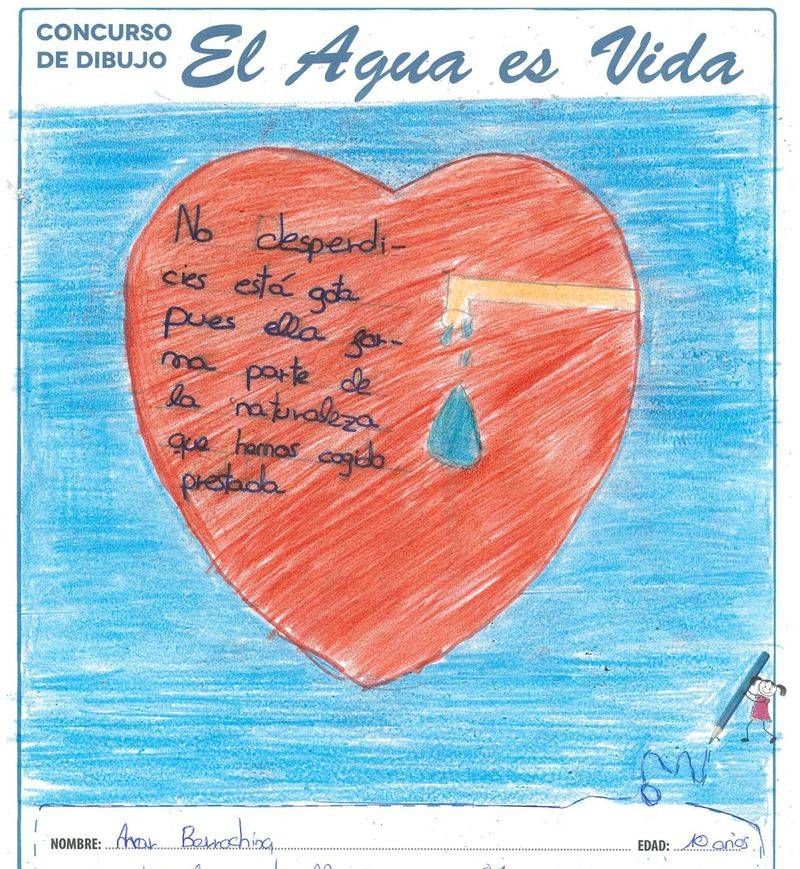 CONCURSO
DE DIBUJO
El Agua es Vida
No desperdi-
cies está gota
pues ella for-
ma parte de
la naturaleza
que hemos cogido
prestada
NOMBRE:
EDAD: 10 años